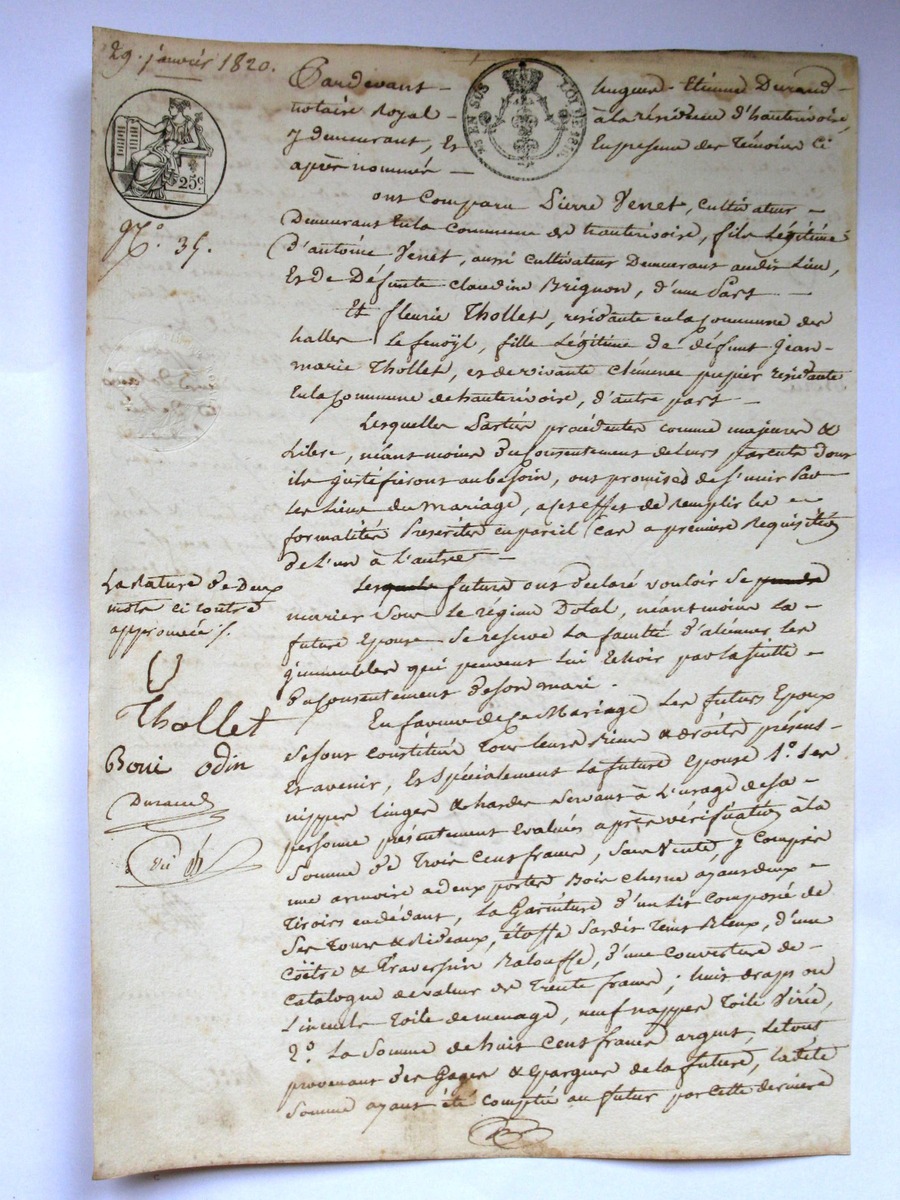 29. janvier 1820.
EN SUS LOI DE 1816.
25c
Pardevant hugues-Etienne Durand
notaire Royal à la résidence d'hauterivoire,
y demeurant, Et En presence des Témoins Ci
après nommés
ont Comparu Pierre Venet, cultivateur
Demeurant En la Commune de hauterivoire, fils Légitime
D'antoine Venet, aussi cultivateur Demeurant audit Lieu,
Et de Défunte claudine Brignon, d'une Part
N.º 35.
Et fleurie Thollet, residante en la Commune des
halles Le fenoÿl, fille Légitime de défunt jean-
marie Thollet, et de vivante Clémence pupier residante
En la Commune de hauterivoire, d'autre part
Lesquelles Parties procédentes comme majeures &
Libre, néantmoins du Consentement de Leurs parents dont
ils justifieront au besoin, ont promis de s'unir Par
Les Liens du Mariage, a ces effet de remplir les
formalités Prescrites en pareil Cas a première Requisition
de L'un à L'autre
Les futurs ont déclaré vouloir se
marier Sous Le régime Dotal, néantmoins La
future Epouse Se reserve La faculté d'aliéner les
jmmeubles qui peuvent Lui Echoir par la suitte
du Consentement de son mari.
La Rature de Deux
mots ci contre
approuvée /.
Thollet
Boni Odin
Durand
En faveur de Ce Mariage Les futurs Epoux
Se sont Constitués Tous leurs Biens & droits présents
Et avenir, Et Spécialement La future Epouse 1.º Ses
nippes Linges & hardes Servant à L'usage de Sa
personne présentement évalués après vérification à La
Somme de Trois Cents francs, Sans Vente, y Compris
une armoire a deux portes Bois Chesne ayant deux
Tiroirs en dédans, La Garniture d'un Lit Composée de
Ses Tours & Rideaux, étoffe Sardis Teint Bleux, d'une
Coëtre & Traversin Balouffe, d'une Couverture de
Catalogne de valeur de Trente francs; huit draps ou
Linceuls Toile de menage, neuf nappes Toile
2.º La Somme de huit Cents francs argent, Le tout
provenant des Gages & Epargnes de la future, La dite
Somme ayant été Comptée au futur par Cette dernière